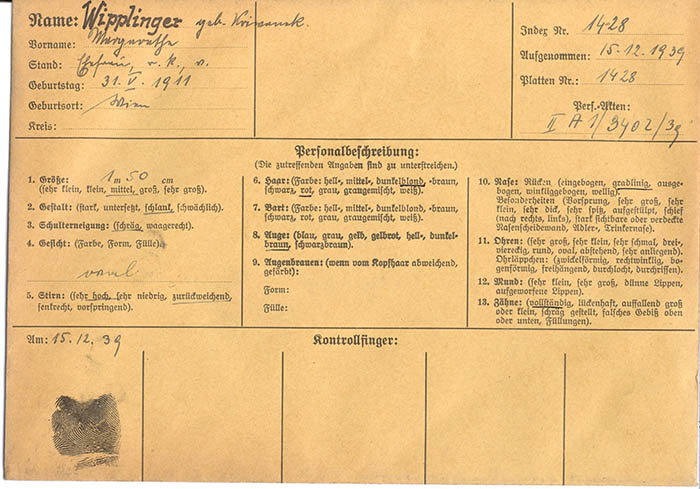 Name: Wipplinger geb. Kriwanek.
Vorname: Margarethe
Stand: Ehefrau, r. k., v.
Geburtstag: 31. V. 1911
Geburtsort: Wien
Kreis:
Index Nr. 1428
Aufgenommen: 15. 12. 1939
Platten Nr.: 1428
Pers.-Akten:
II A 1/3402/39
Personalbeschreibung:
(Die zutreffenden Angaben sind zu unterstreichen.)
1. Größe: 1 m 50 cm
(sehr klein, klein, mittel, groß, sehr groß).
2. Gestalt: (stark, untersetzt, schlank, schwächlich).
3. Schulterneigung: (schräg, waagerecht).
4. Gesicht: (Farbe, Form, Fülle)
oval
5. Stirn: (sehr hoch, sehr niedrig, zurückweichend,
senkrecht, vorspringend).
6. Haar: (Farbe: hell-, mittel-, dunkelblond, -braun,
schwarz, rot, grau, graugemischt, weiß).
7. Bart: (Farbe: hell-, mittel-, dunkelblond, -braun,
schwarz, rot, grau, graugemischt, weiß).
8. Auge: (blau, grau, gelb, gelbrot, hell-, dunkel-
braun, schwarzbraun).
9. Augenbrauen: (wenn vom Kopfhaar abweichend,
gefärbt):
Form:
Fülle:
10. Nase: Rücken (eingebogen, gradlinig, ausge-
bogen, winkliggebogen, wellig).
Besonderheiten (Vorsprung, sehr groß, sehr
klein, sehr dick, sehr spitz, aufgestülpt, schief
(nach rechts, links), stark sichtbare oder verdeckte
Nasenscheidewand, Adler-, Trinkernase).
11. Ohren: (sehr groß, sehr klein, sehr schmal, drei-,
viereckig, rund, oval, abstehend, sehr anliegend).
Ohrläppchen: (zwickelförmig, rechtwinklig, bo-
genförmig, freihängend, durchlocht, durchrissen).
12. Mund: (sehr klein, sehr groß, dünne Lippen,
aufgeworfene Lippen).
13. Zähne: (vollständig, lückenhaft, auffallend groß
oder klein, schräg gestellt, falsches Gebiß oben
oder unten, Füllungen).
Am: 15. 12. 39
Kontrollfinger: